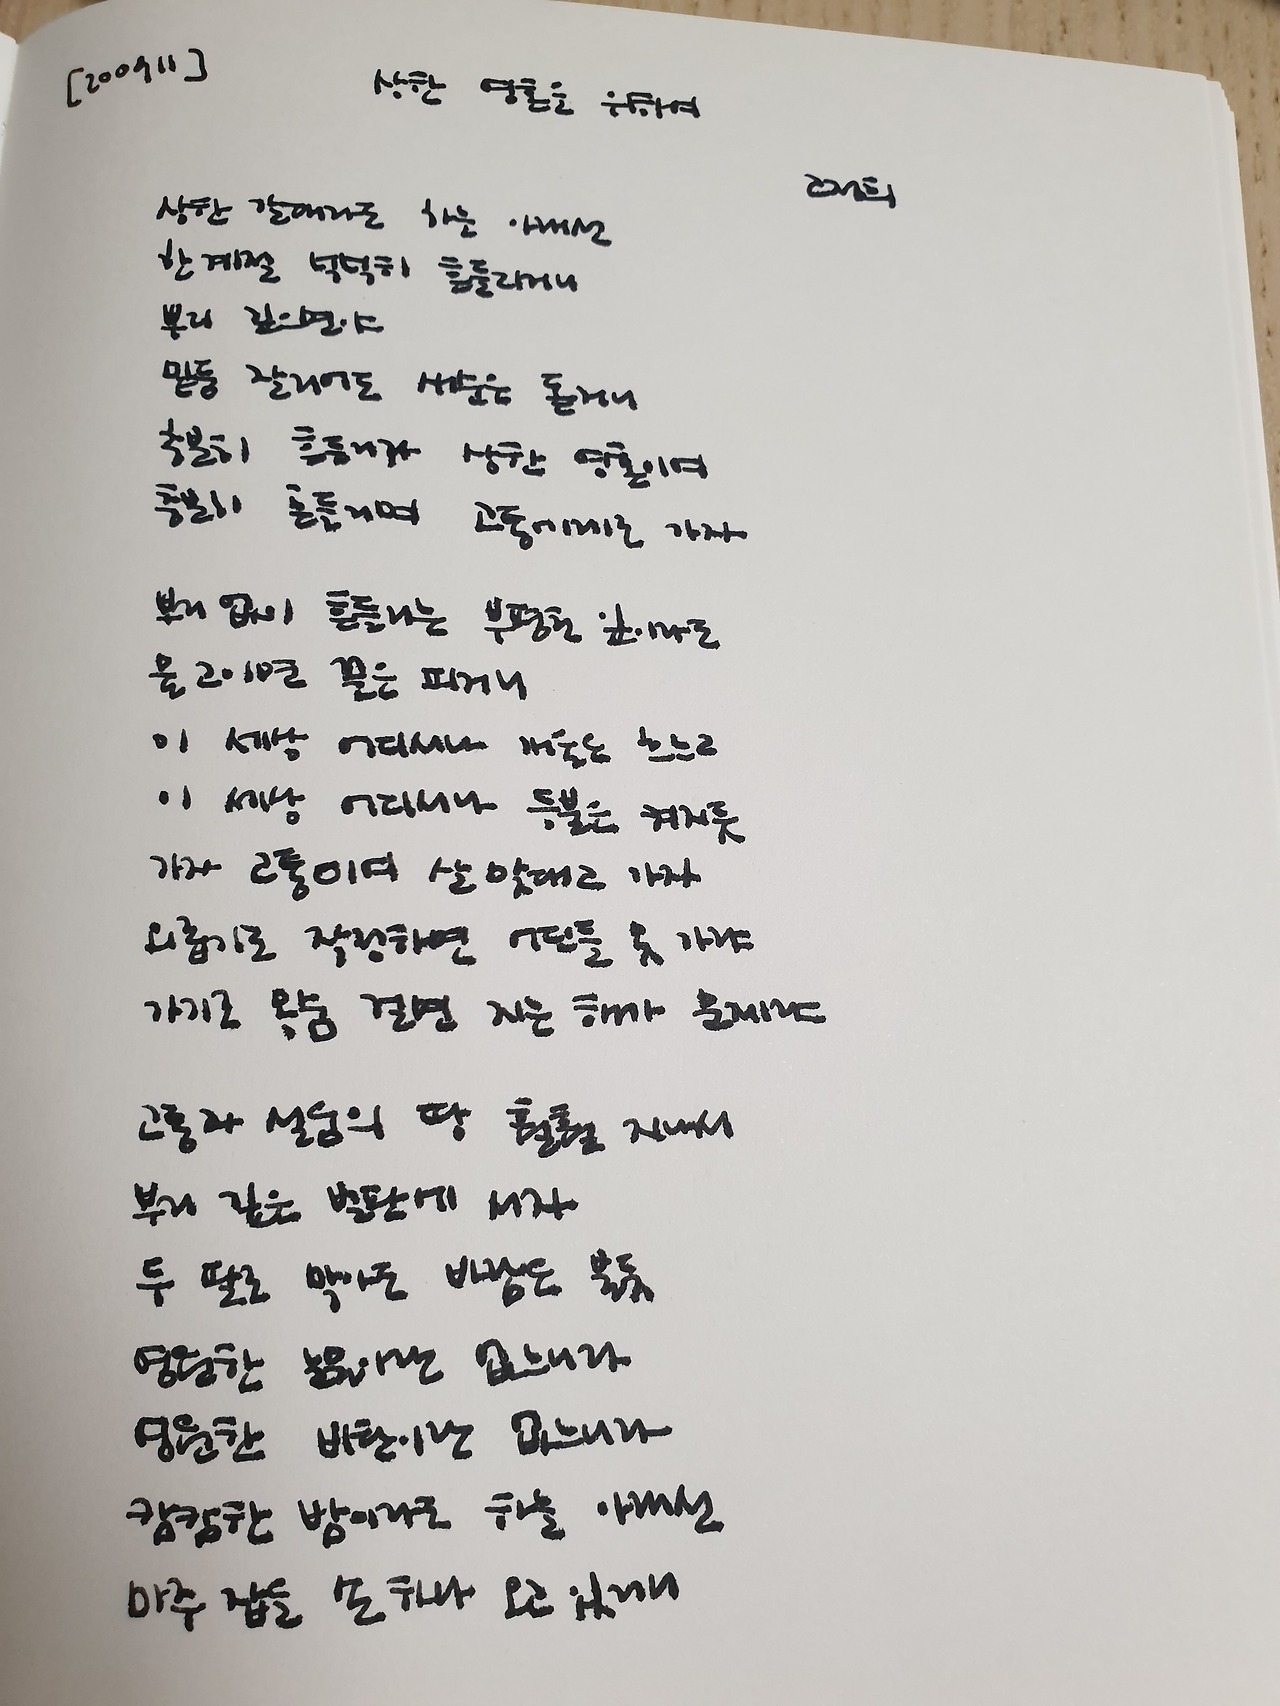 [200911]
상한 영혼을 위하여
고정희
상한 갈대라도 하늘 아래선
한 계절 넉넉히 흔들리거니
뿌리 깊으면야
밑둥 잘리어도 새순은 돋거니
충분히 흔들리자 상한 영혼이여
충분히 흔들리며 고통에게로 가자
뿌리 없이 흔들리는 부평초 잎이라도
물 고이면 꽃은 피거니
이 세상 어디서나 개울은 흐르고
이 세상 어디서나 등불은 켜지듯
가자 고통이여 살 맞대고 가자
외롭기로 작정하면 어딘들 못 가랴
가기로 목숨 걸면 지는 해가 문제랴
고통과 설움의 땅 훨훨 지나서
뿌리 깊은 벌판에 서자
두 팔로 막아도 바람은 불듯
영원한 눈물이란 없느니라
영원한 비탄이란 없느니라
캄캄한 밤이라도 하늘 아래선
마주 잡을 손 하나 오고 있거니